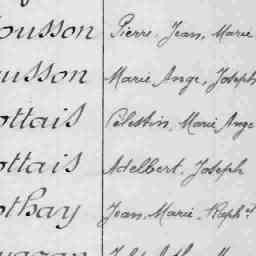 ousson Pierre, Jean, Marie
usson Marie Ange, Joseph
ottais Célestin, Marie Ange
ottais Adelbert, Joseph
othay Jean, Marie, Raphel